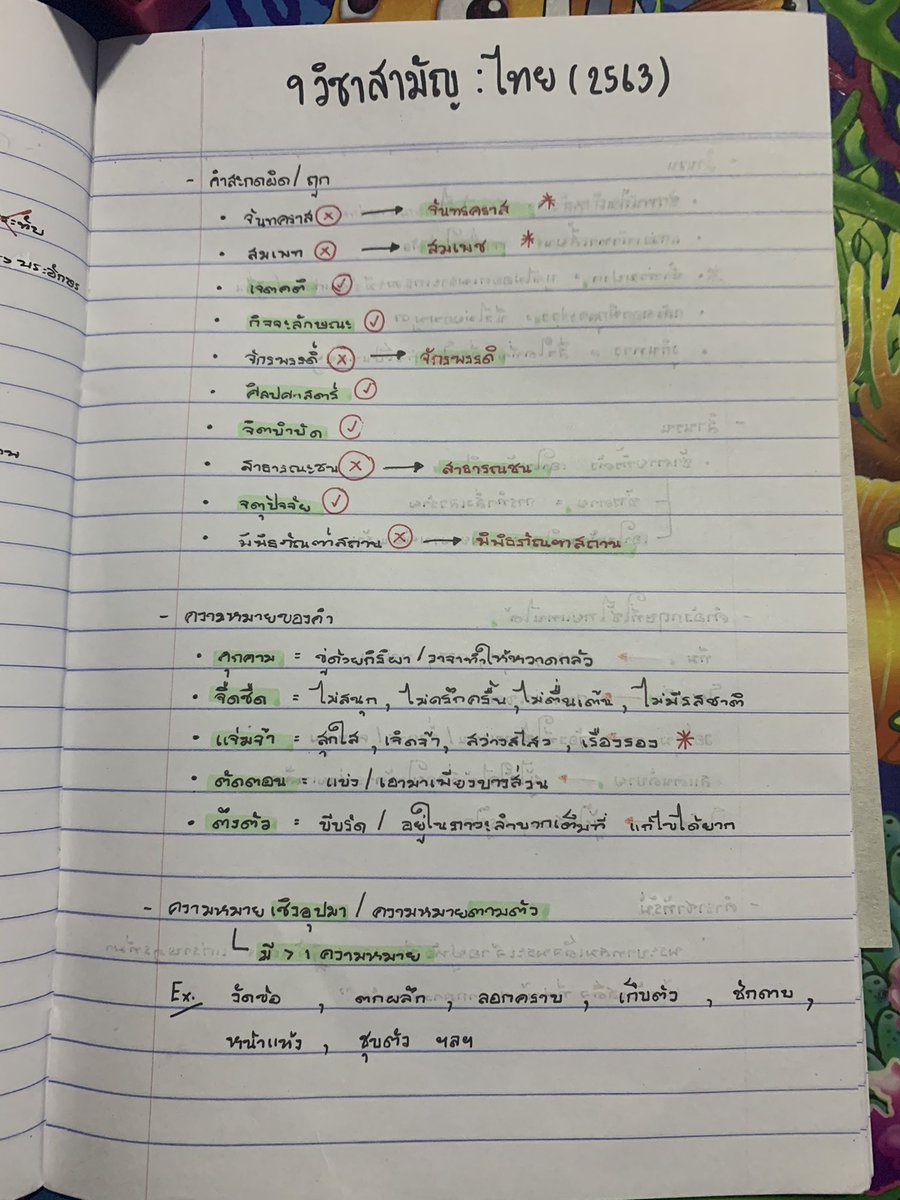 9 วิชาสามัญ : ไทย (2563)
- คำสะกดผิด / ถูก
• จันทคราส ⓧ → จันทรคราส *
• สมเพท ⓧ → สมเพช *
• เจตคติ ✓
• กิจจะลักษณะ ✓
• จักรพรรดิ์ ⓧ → จักรพรรดิ
• ศิลปศาสตร์ ✓
• จิตบำบัด ✓
• สาธารณะชน ⓧ → สาธารณชน
• จตุปัจจัย ✓
• พิพิธภัณฑ์สถาน ⓧ → พิพิธภัณฑสถาน
- ความหมายของคำ
• คุกคาม = ขู่ด้วยกิริยา / วาจาทำให้หวาดกลัว
• จืดชืด = ไม่สนุก , ไม่ครึกครื้น , ไม่ตื่นเต้น , ไม่มีรสชาติ
• แจ่มจ้า = สุกใส , เจิดจ้า , สว่างสไสว , เรืองรอง *
• ตัดตอน = แบ่ง / เอามาเพียงบางส่วน
• ตึงตัว = บีบรัด / อยู่ในภาวะลำบากเต็มที่ แก้ไขได้ยาก
- ความหมายเชิงอุปมา / ความหมายตามตัว
มี > 1 ความหมาย
Ex. วัดข้อ , ตกผลึก , ลอกคราบ , เก็บตัว , ชักดาบ ,
หน้าแห้ง , ชุบตัว ฯลฯ